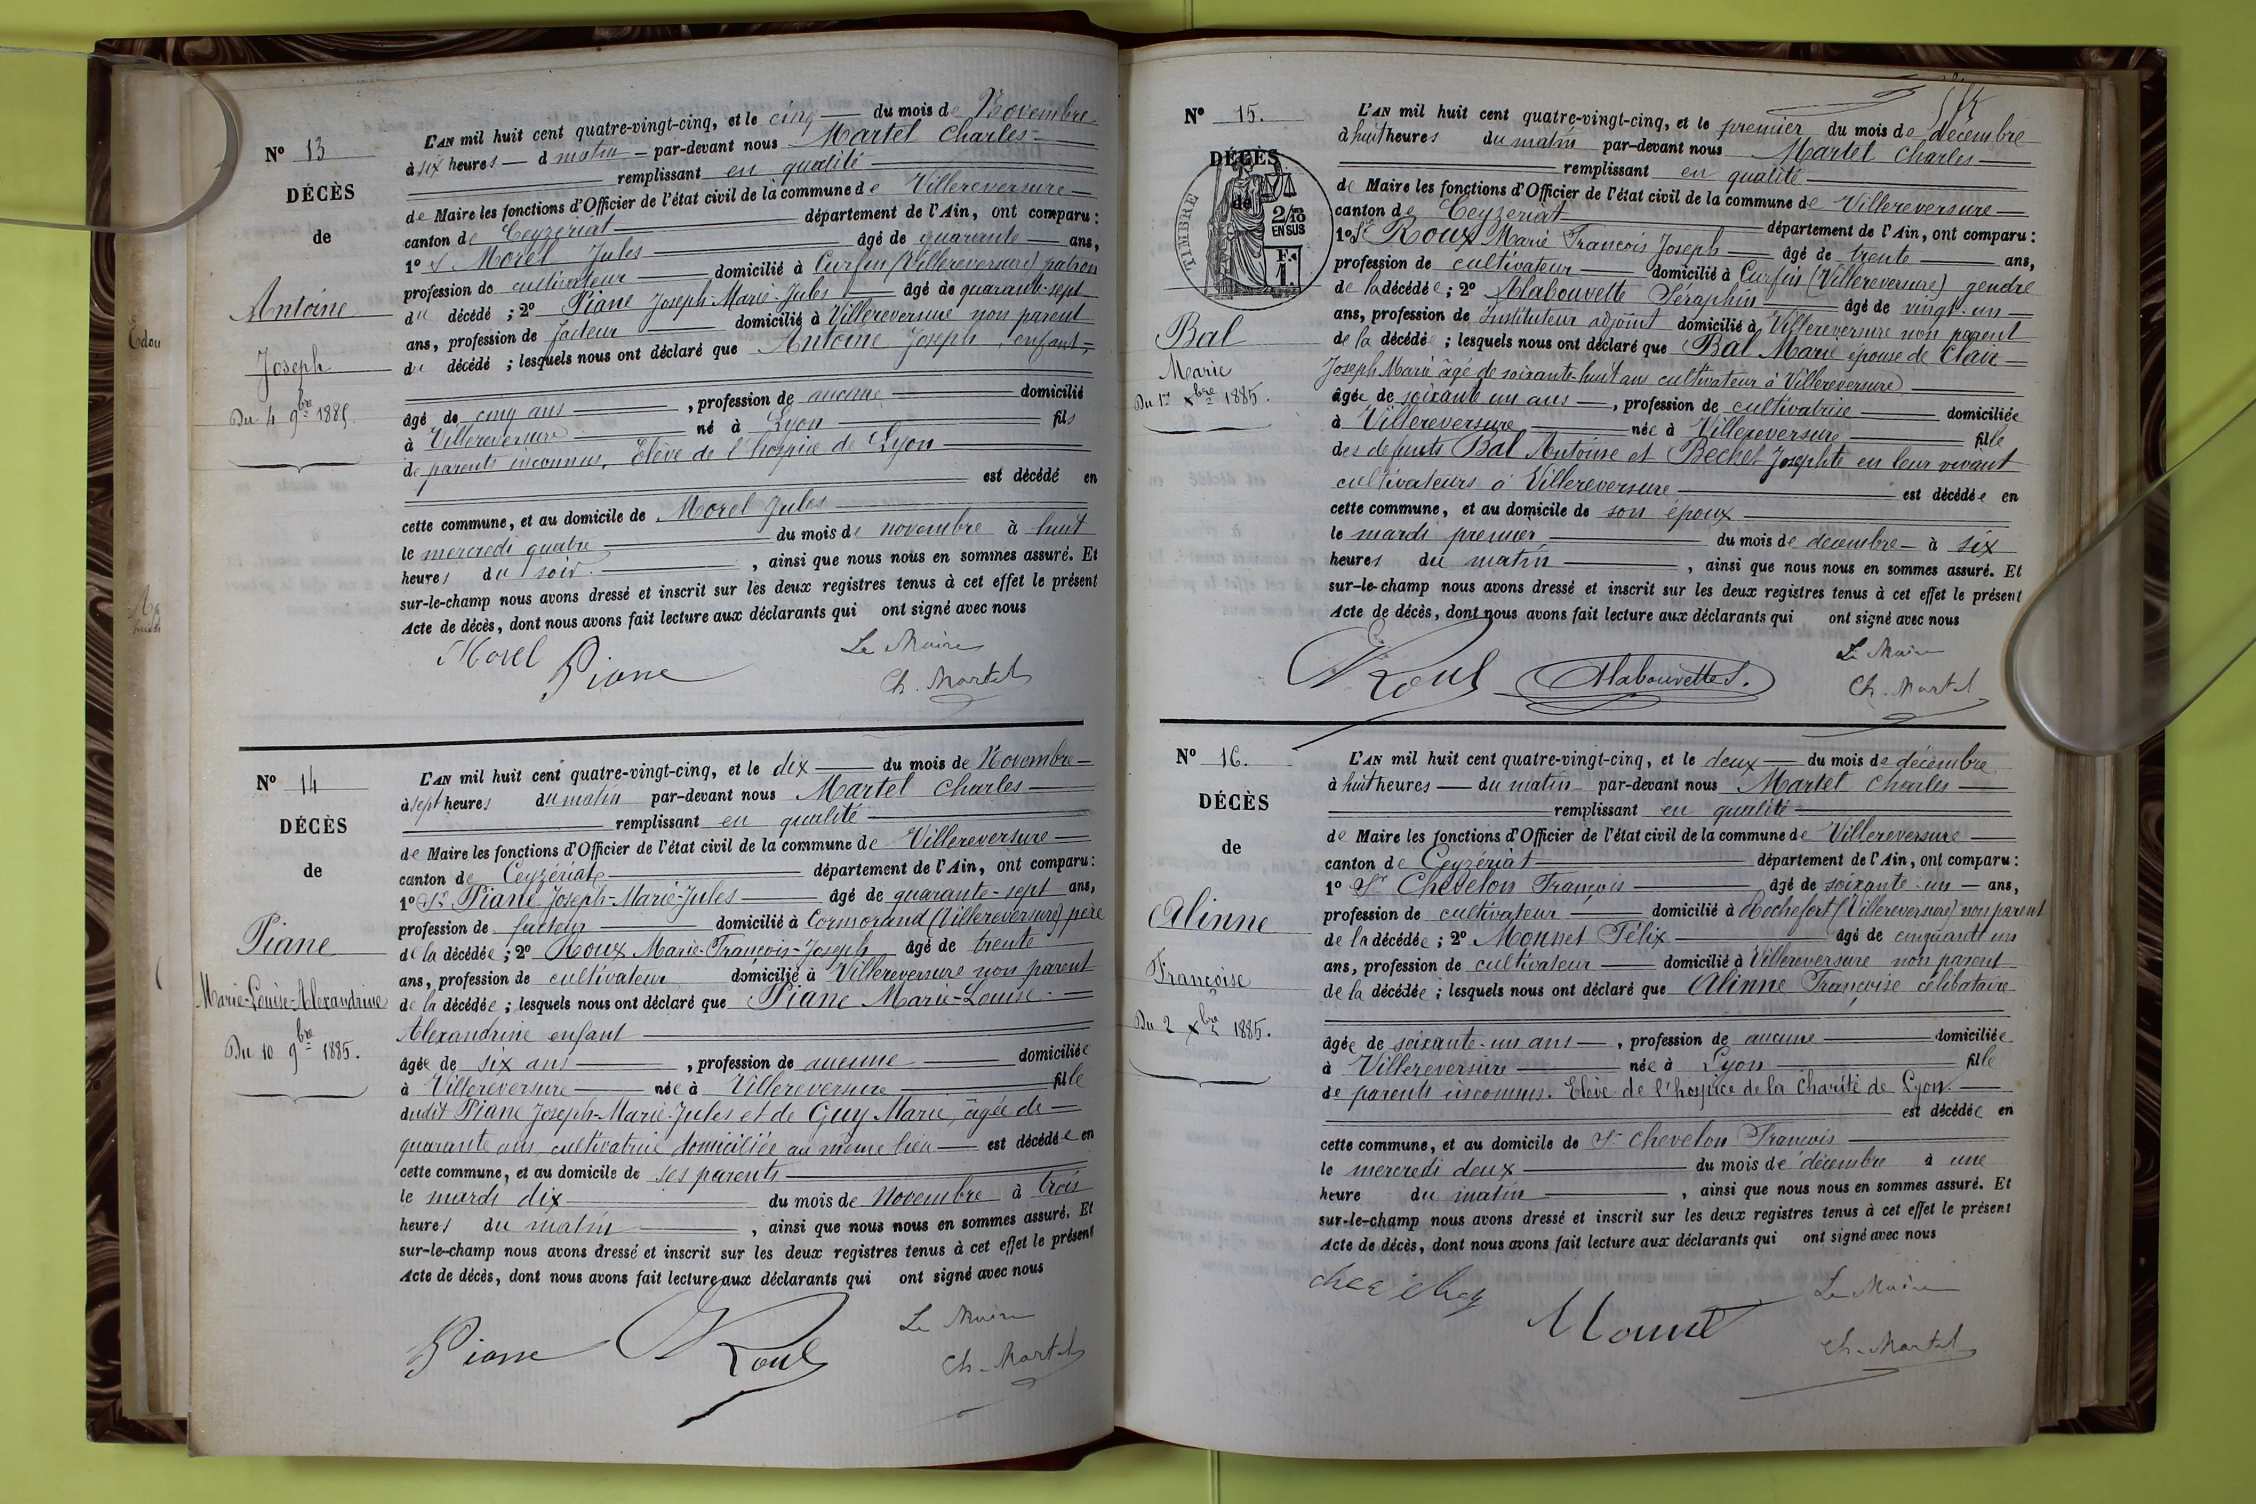 N° 13
DÉCÈS
de
Antoine
Joseph
Du 4 9bre 1885.
L'AN mil huit cent quatre-vingt-cinq, et le cinq du mois de Novembre
à six heures d matin par-devant nous Martel Charles
remplissant en qualité
de Maire les fonctions d'Officier de l'état civil de la commune de Villereversure
canton de Ceyzériat département de l'Ain, ont comparu :
1° S Morel Jules âgé de quarante ans,
profession de cultivateur domicilié à Curfin (Villereversure) patron
du décédé ; 2° Piane Joseph-Marie-Jules âgé de quarante-sept
ans, profession de facteur domicilié à Villereversure non parent
du décédé ; lesquels nous ont déclaré que Antoine Joseph enfant
âgé de cinq ans , profession de aucune domicilié
à Villereversure né à Lyon fils
de parents inconnus. Elève de l'hospice de Lyon
est décédé en
cette commune, et au domicile de Morel Jules
le mercredi quatre du mois de novembre à huit
heures du soir , ainsi que nous nous en sommes assuré. Et
sur-le-champ nous avons dressé et inscrit sur les deux registres tenus à cet effet le présent
Acte de décès, dont nous avons fait lecture aux déclarants qui ont signé avec nous
Morel Piane Le Maire
Ch. Martel
N° 14
DÉCÈS
de
Piane
Marie-Louise-Alexandrine
Du 10 9bre 1885.
L'AN mil huit cent quatre-vingt-cinq, et le dix du mois de Novembre
à sept heures du matin par-devant nous Martel Charles
remplissant en qualité
de Maire les fonctions d'Officier de l'état civil de la commune de Villereversure
canton de Ceyzériat département de l'Ain, ont comparu :
1° Sr Piane Joseph-Marie-Jules âgé de quarante-sept ans,
profession de facteur domicilié à Cormorand (Villereversure) père
de la décédée ; 2° Roux Marie-François-Joseph âgé de trente
ans, profession de cultivateur domicilié à Villereversure non parent
de la décédée ; lesquels nous ont déclaré que Piane Marie-Louise-
Alexandrine enfant
âgée de six ans , profession de aucune domiciliée
à Villereversure née à Villereversure fille
dudit Piane Joseph-Marie-Jules et de Guy Marie, âgée de
quarante ans cultivatrice domiciliée au même lieu est décédée en
cette commune, et au domicile de ses parents
le mardi dix du mois de Novembre à trois
heures du matin , ainsi que nous nous en sommes assuré. Et
sur-le-champ nous avons dressé et inscrit sur les deux registres tenus à cet effet le présent
Acte de décès, dont nous avons fait lecture aux déclarants qui ont signé avec nous
Piane Roux Le Maire
Ch. Martel
N° 15.
DÉCÈS
de
TIMBRE
2/10 EN SUS
F. 1
Bal
Marie
Du 1er Xbre 1885.
L'AN mil huit cent quatre-vingt-cinq, et le premier du mois de décembre
à huit heures du matin par-devant nous Martel Charles
remplissant en qualité
de Maire les fonctions d'Officier de l'état civil de la commune de Villereversure
canton de Ceyzériat département de l'Ain, ont comparu :
1° Sr Roux Marie François Joseph âgé de trente ans,
profession de cultivateur domicilié à Curfin (Villereversure) gendre
de la décédée ; 2° Alabouvette Séraphin âgé de vingt-un
ans, profession de Instituteur adjoint domicilié à Villereversure non parent
de la décédée ; lesquels nous ont déclaré que Bal Marie épouse de Clair
Joseph Marie âgé de soixante-huit ans cultivateur à Villereversure
âgée de soixante un ans , profession de cultivatrice domiciliée
à Villereversure née à Villereversure fille
des défunts Bal Antoine et Bechet Josephte en leur vivant
cultivateurs à Villereversure est décédée en
cette commune, et au domicile de son époux
le mardi premier du mois de décembre à six
heures du matin , ainsi que nous nous en sommes assuré. Et
sur-le-champ nous avons dressé et inscrit sur les deux registres tenus à cet effet le présent
Acte de décès, dont nous avons fait lecture aux déclarants qui ont signé avec nous
Roux Alabouvette S. Le Maire
Ch. Martel
N° 16.
DÉCÈS
de
Alinne
Françoise
Du 2 Xbre 1885.
L'AN mil huit cent quatre-vingt-cinq, et le deux du mois de décembre
à huit heures du matin par-devant nous Martel Charles
remplissant en qualité
de Maire les fonctions d'Officier de l'état civil de la commune de Villereversure
canton de Ceyzériat département de l'Ain, ont comparu :
1° Sr Chevelon François âgé de soixante-un ans,
profession de cultivateur domicilié à Rochefort (Villereversure) non parent
de la décédée ; 2° Monnet Félix âgé de cinquante un
ans, profession de cultivateur domicilié à Villereversure non parent
de la décédée ; lesquels nous ont déclaré que Alinne Françoise célibataire
âgée de soixante-un ans , profession de aucune domiciliée
à Villereversure née à Lyon fille
de parents inconnus. Elève de l'hospice de la Charité de Lyon.
est décédée en
cette commune, et au domicile de Sr Chevelon François
le mercredi deux du mois de décembre à une
heure du matin , ainsi que nous nous en sommes assuré. Et
sur-le-champ nous avons dressé et inscrit sur les deux registres tenus à cet effet le présent
Acte de décès, dont nous avons fait lecture aux déclarants qui ont signé avec nous
Monnet Le Maire
Ch. Martel